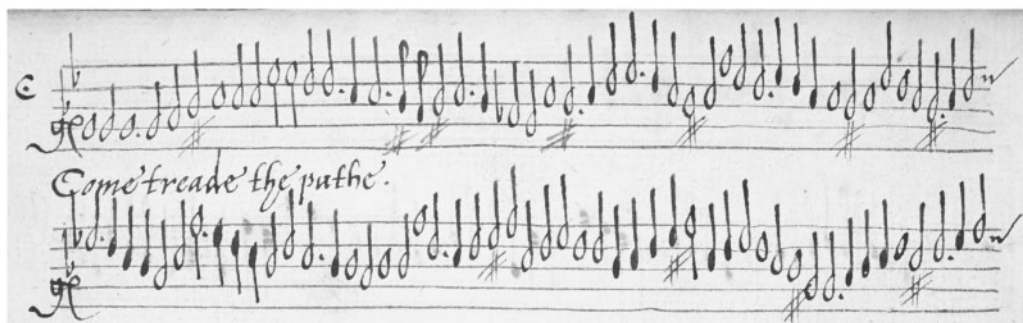 Come treade the pathe.